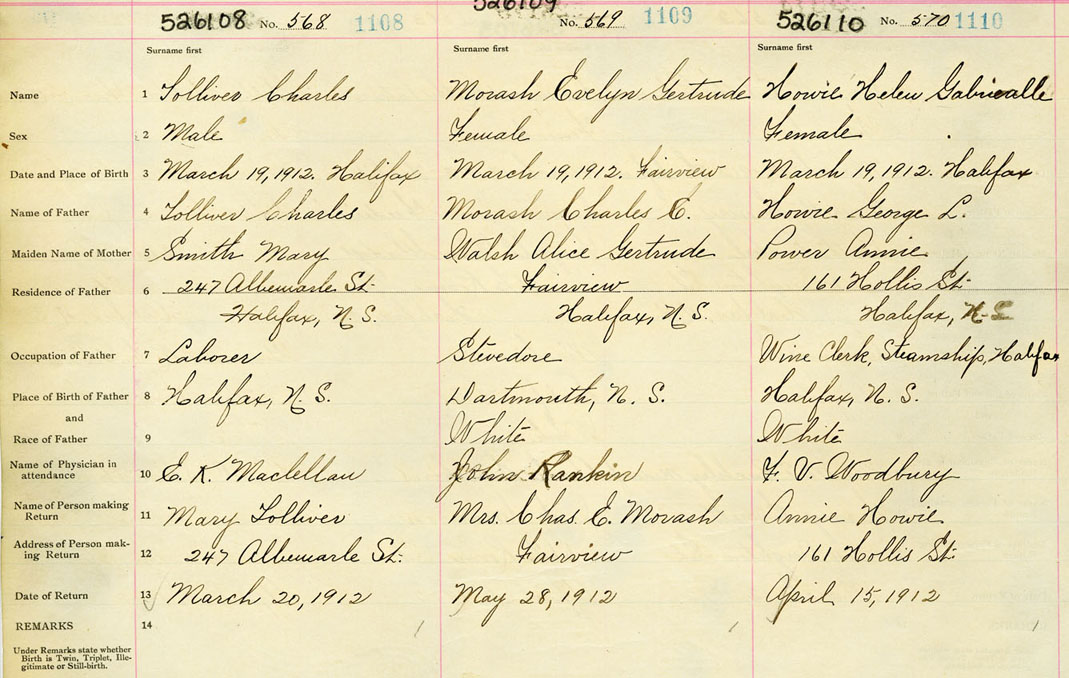 526108 No. 568 1108 526109 No. 569 1109 526110 No. 570 1110
Surname first Surname first Surname first
Name 1 Tolliver Charles Morash Evelyn Gertrude Howie Helen Gabriealle
Sex 2 Male Female Female
Date and Place of Birth 3 March 19, 1912. Halifax March 19, 1912. Fairview March 19, 1912. Halifax
Name of Father 4 Tolliver Charles Morash Charles E. Howie George L.
Maiden Name of Mother 5 Smith Mary Walsh Alice Gertrude Power Annie
Residence of Father 6 247 Albemarle St. Fairview 161 Hollis St.
Halifax, N.S. Halifax, N.S. Halifax, N.S.
Occupation of Father 7 Laborer Stevedore Wine Clerk, Steamship, Halifax
Place of Birth of Father 8 Halifax, N.S. Dartmouth, N.S. Halifax, N.S.
and
Race of Father 9 White White
Name of Physician in
attendance 10 E. K. Maclellan John Rankin F. V. Woodbury
Name of Person making
Return 11 Mary Tolliver Mrs. Chas. E. Morash Annie Howie
Address of Person mak-
ing Return 12 247 Albemarle St. Fairview 161 Hollis St.
Date of Return 13 March 20, 1912 May 28, 1912 April 15, 1912
REMARKS 14
Under Remarks state whether
Birth is Twin, Triplet, Ille-
gitimate or Still-birth.